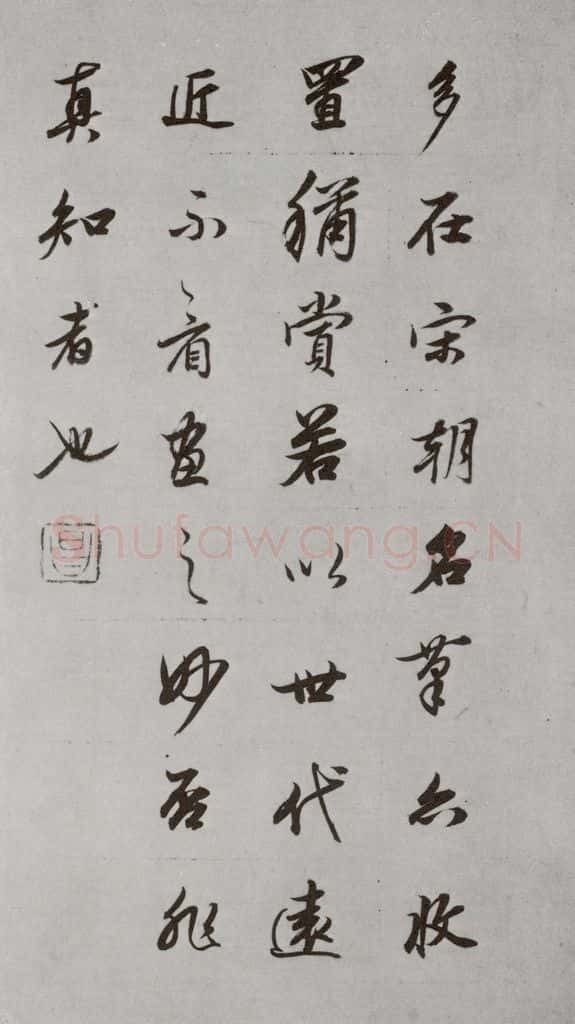 多在宋朝名筆亦收
置稱賞若以世代遠
近不看畫之妙否非
真知者也
Shufawang.CN